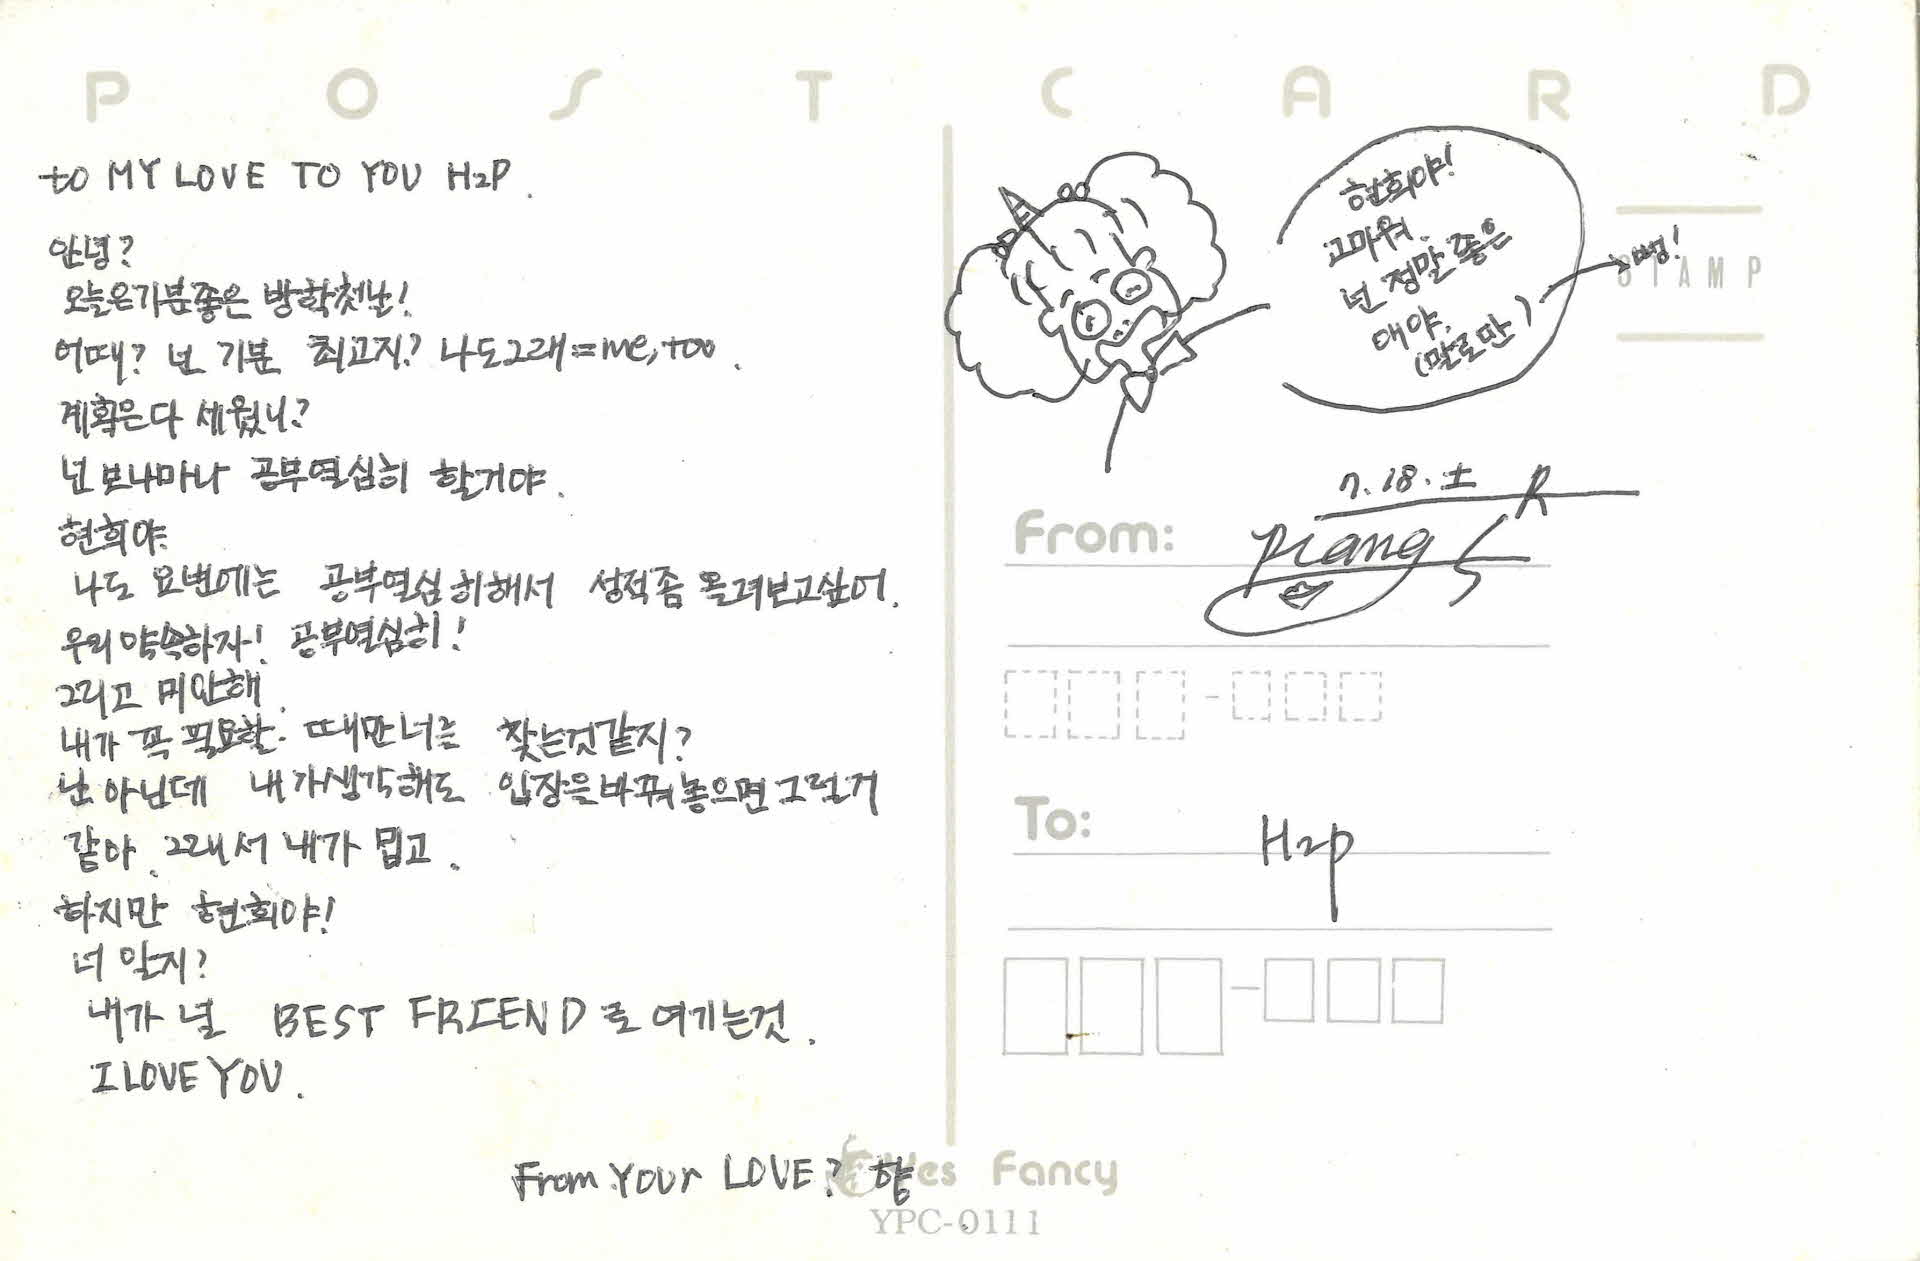 POST CARD
to MY LOVE TO YOU H2P.
안녕?
오늘은기분좋은 방학첫날!
어때? 넌 기분 최고지? 나도그래=me, too.
계획은다 세웠니?
넌 보나마나 공부열심히 할거야.
현희야
나도 요번에는 공부열심히해서 성적좀 올려보고싶어.
우리약속하자! 공부열심히!
그리고 미안해.
내가 꼭 필요할 때만너를 찾는것같지?
난아닌데 내가생각해도 입장을바꿔놓으면그런거
같아. 그래서 내가 밉고.
하지만 현희야!
너 알지?
내가 널 BEST FRIEND로 여기는것.
I LOVE YOU.
From YOUr LOVE? 향
현희야!
고마워.
넌 정말좋은
애야.
(말로만)
뻥!
STAMP
7. 18. 土
From:
R
To: H2p
Yes Fancy
YPC-0111